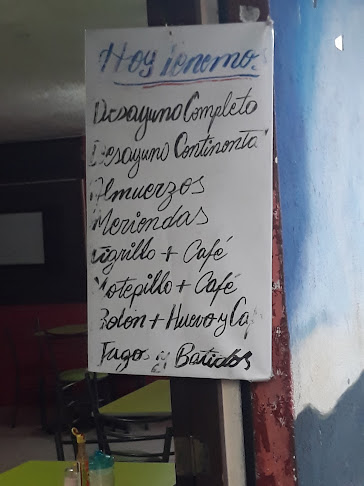 Hoy tenemos
Desayuno Completo
Desayuno Continental
Almuerzos
Meriendas
Tigrillo + Café
Motepillo + Café
Bolón + Huevo y Caf
Jugos y Batidos